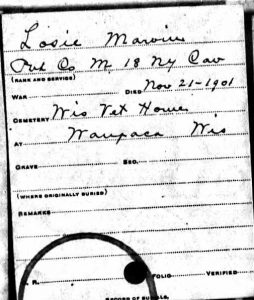 Losie Marvin
Pvt Co M. 18 Ny Cav
(RANK AND SERVICE)
WAR DIED Nov 21-1901
CEMETERY Wis Vet Home
AT Waupaca Wis
GRAVE SEC.
(WHERE ORIGINALLY BURIED)
REMARKS
R. FOLIO VERIFIED
RECORD OF BURIALS,